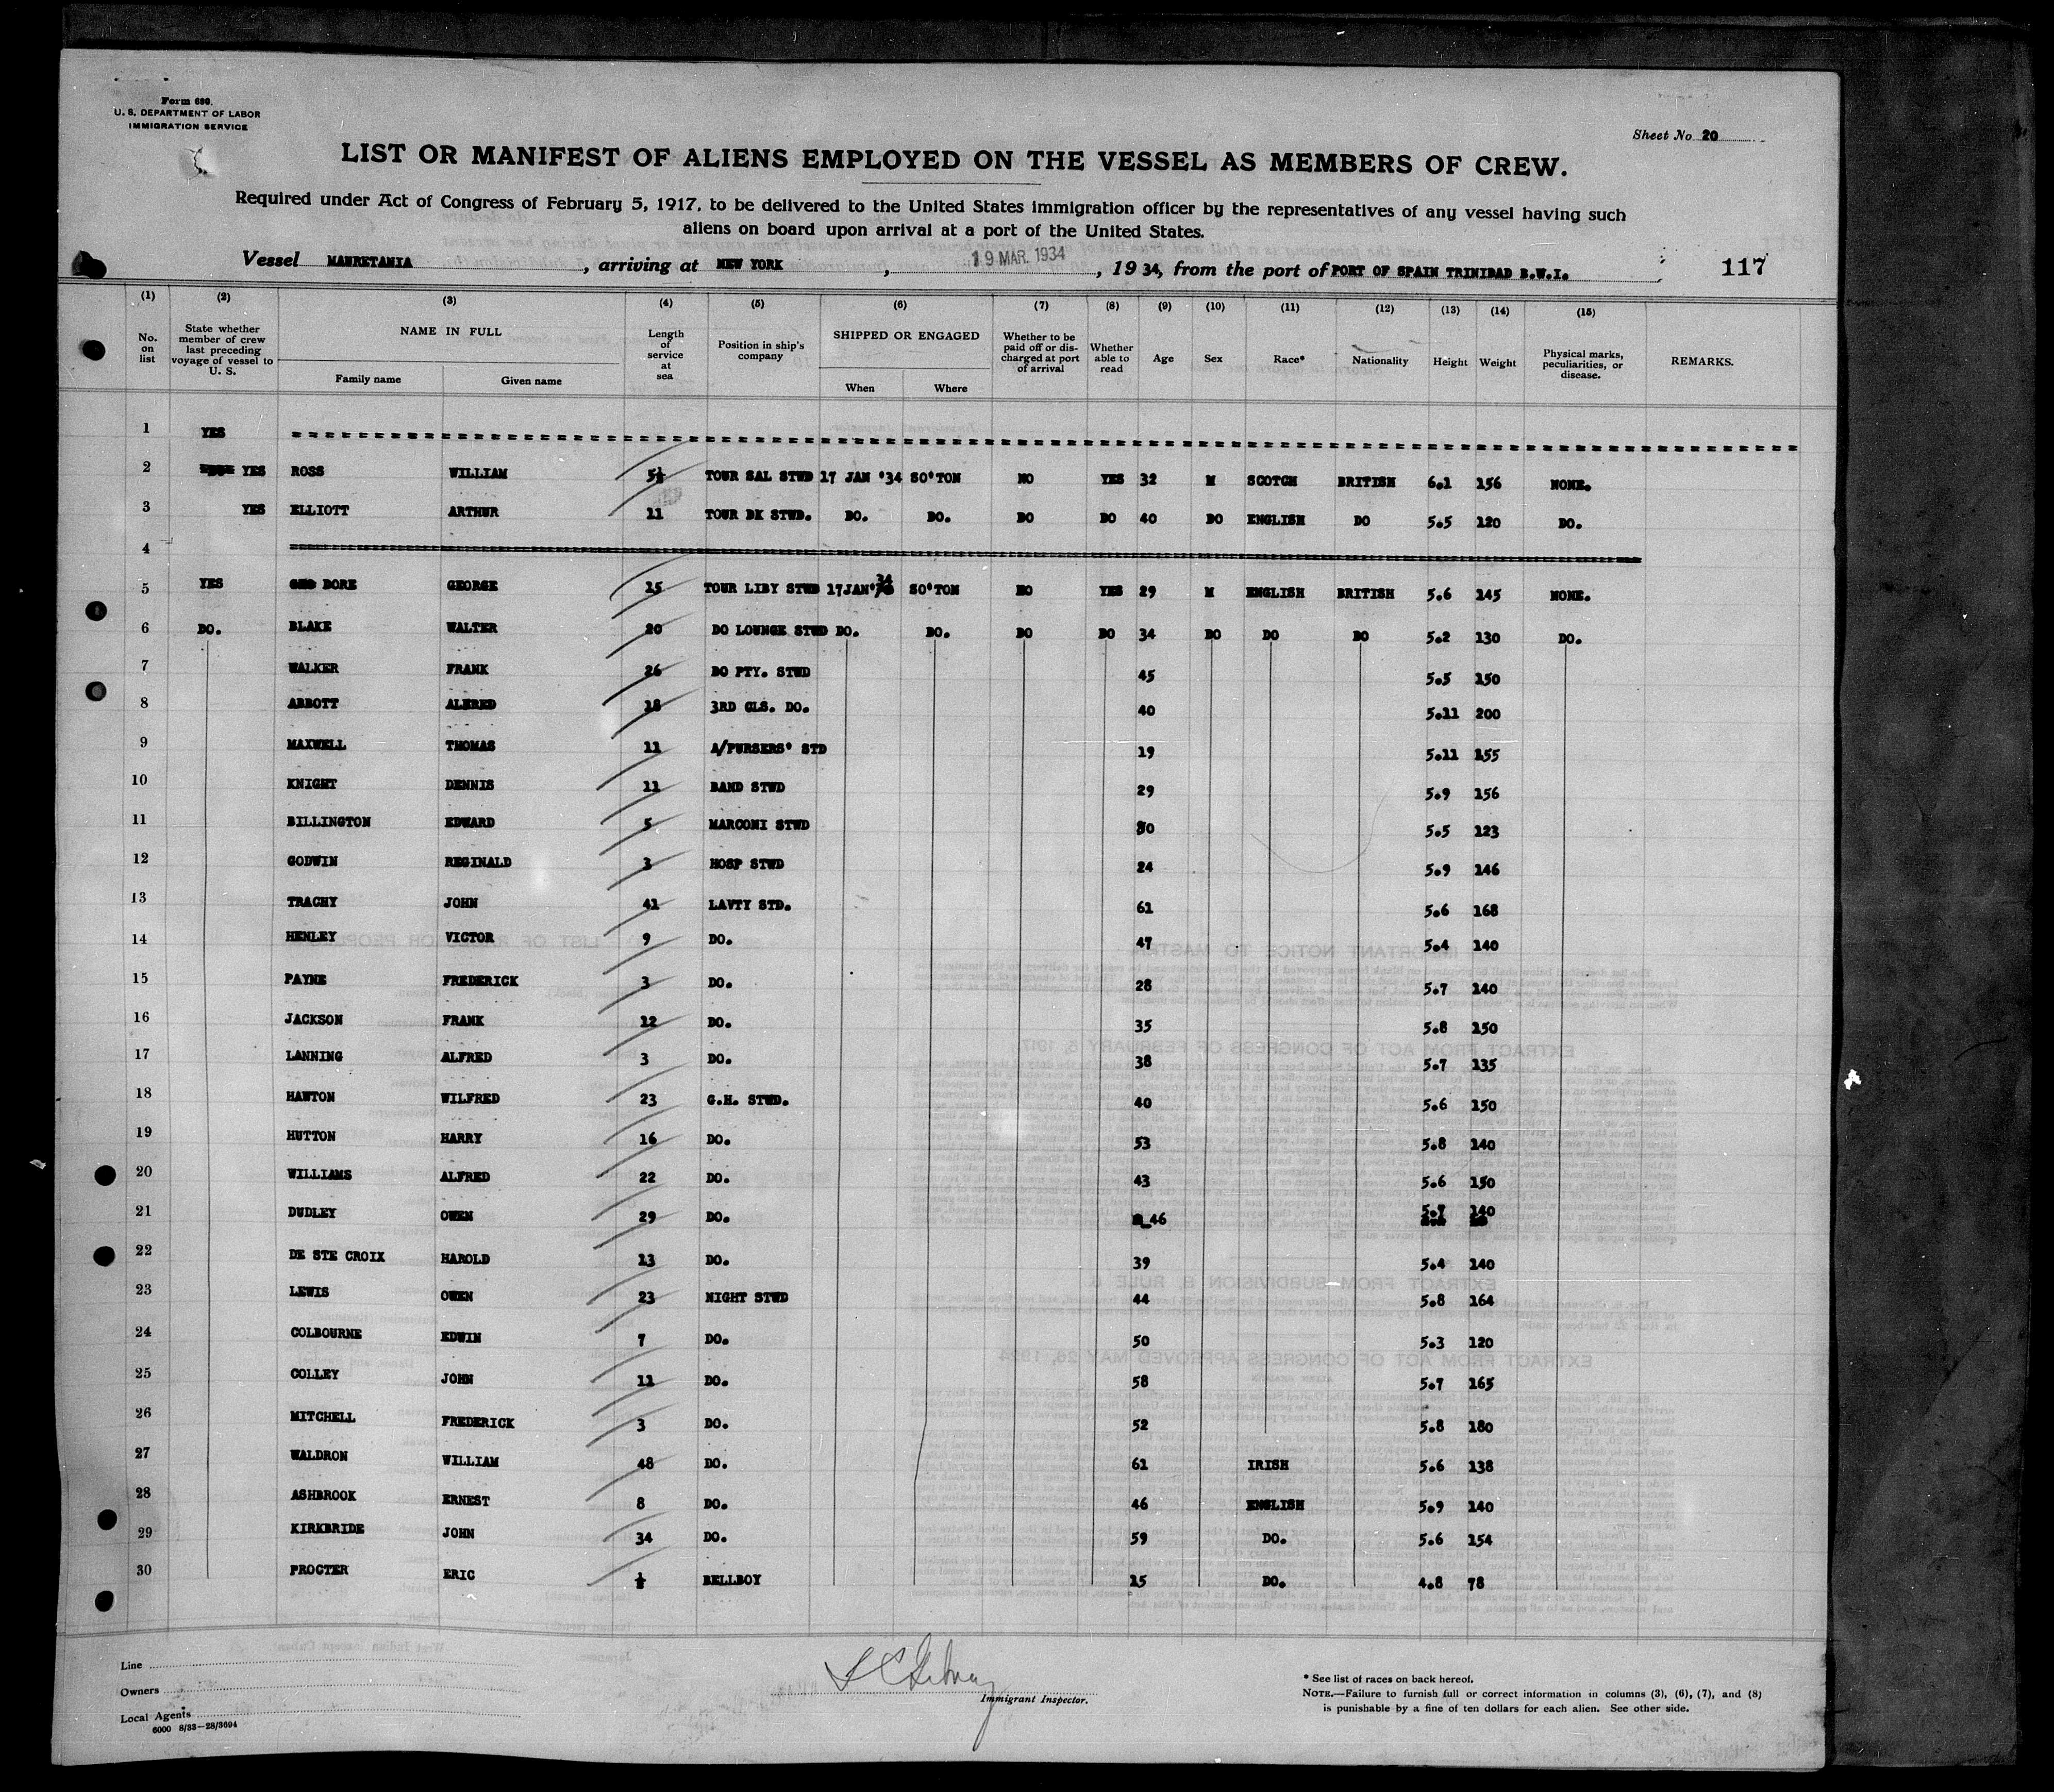 Form 680.
U. S. DEPARTMENT OF LABOR
IMMIGRATION SERVICE
Sheet No 20
LIST OR MANIFEST OF ALIENS EMPLOYED ON THE VESSEL AS MEMBERS OF CREW.
Required under Act of Congress of February 5, 1917, to be delivered to the United States immigration officer by the representatives of any vessel having such
aliens on board upon arrival at a port of the United States.
Vessel MAURETANIA, arriving at NEW YORK, 19 MAR. 1934, 1934, from the port of PORT OF SPAIN TRINIDAD B.W.I. 117
(1) (2) (3) (4) (5) (6) (7) (8) (9) (10) (11) (12) (13) (14) (15)
No. on list State whether member of crew last preceding voyage of vessel to U. S. NAME IN FULL Family name Given name Length of service at sea Position in ship's company SHIPPED OR ENGAGED When Where Whether to be paid off or discharged at port of arrival Whether able to read Age Sex Race* Nationality Height Weight Physical marks, peculiarities, or disease. REMARKS.
1 YES
2 YES ROSS WILLIAM 5½ TOUR SAL STWD 17 JAN '34 SO'TON NO YES 32 M SCOTCH BRITISH 6.1 156 NONE.
3 YES ELLIOTT ARTHUR 11 TOUR DK STWD. DO. DO. DO DO 40 DO ENGLISH DO 5.5 120 DO.
4
5 YES DORE GEORGE 15 TOUR LIBY STWD 17JAN'34 SO'TON NO YES 29 M ENGLISH BRITISH 5.6 145 NONE.
6 DO. BLAKE WALTER 20 DO LOUNGE STWD DO. DO. DO DO 34 DO DO DO 5.2 130 DO.
7 WALKER FRANK 26 DO PTY. STWD 45 5.5 150
8 ABBOTT ALFRED 18 3RD CLS. DO. 40 5.11 200
9 MAXWELL THOMAS 11 A/PURSERS' STD 19 5.11 155
10 KNIGHT DENNIS 11 BAND STWD 29 5.9 156
11 BILLINGTON EDWARD 5 MARCONI STWD 5.5 123
12 GODWIN REGINALD 3 HOSP STWD 24 5.9 146
13 TRACHY JOHN 41 LAVTY STD. 61 5.6 168
14 HENLEY VICTOR 9 DO. 47 5.4 140
15 PAYNE FREDERICK 3 DO. 28 5.7 140
16 JACKSON FRANK 12 DO. 35 5.8 150
17 LANNING ALFRED 3 DO. 38 5.7 135
18 HAWTON WILFRED 23 G.H. STWD. 40 5.6 150
19 HUTTON HARRY 16 DO. 53 5.8 140
20 WILLIAMS ALFRED 22 DO. 43 5.6 150
21 DUDLEY OWEN 29 DO. 46 5.7 140
22 DE STE CROIX HAROLD 13 DO. 39 5.4 140
23 LEWIS OWEN 23 NIGHT STWD 44 5.8 164
24 COLBOURNE EDWIN 7 DO. 50 5.3 120
25 COLLEY JOHN 11 DO. 58 5.7 165
26 MITCHELL FREDERICK 3 DO. 52 5.8 180
27 WALDRON WILLIAM 48 DO. 61 IRISH 5.6 138
28 ASHBROOK ERNEST 8 DO. 46 ENGLISH 5.9 140
29 KIRKBRIDE JOHN 34 DO. 59 DO. 5.6 154
30 PROCTER ERIC ½ BELLBOY 15 DO. 4.8 78
Line
Owners
Local Agents
6000 8/33—28/3694
Immigrant Inspector.
* See list of races on back hereof.
NOTE.—Failure to furnish full or correct information in columns (3), (6), (7), and (8)
is punishable by a fine of ten dollars for each alien. See other side.